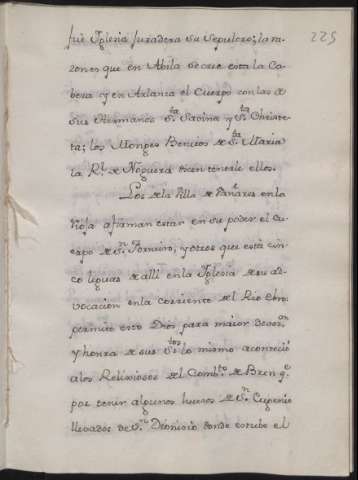 225
fue Iglesia juradera su Sepulcro; las ra-
zones que en Abila se cree esta la Ca-
beza y en Arlanza el Cuerpo con las de
sus Hermanos S.ta Savina y S.ta Christe-
ta; los Monges Benitos de S.ta Maria
la R.l de Nagera dicen tenerle ellos.
Los de la Villa de en la
Rioja afirman estar en su poder el Cu-
erpo de S.n y otros que está cin-
co leguas de alli en la Iglesia de su ad-
vocacion en la corriente del Rio ebro:
permite esto Dios para maior devoc.on
y honra de sus S.tos lo mismo acontecio
a los Relixiosos del Comb.to de q.e
por tener algunos huesos de S.n Eugenio
llevados de S.n Dionisio donde estube el